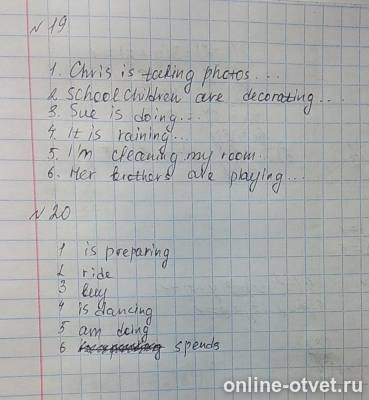 № 19
1. Chris is taking photos...
2. Schoolchildren are decorating...
3. Sue is doing...
4. It is raining...
5. I'm cleaning my room.
6. Her brothers are playing...
№ 20
1 is preparing
2 ride
3 buy
4 is dancing
5 am doing
6 spends
online-otvet.ru